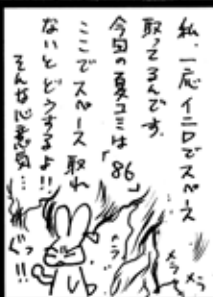 私、一応イニDでスペース
取ってるんです。
今回の夏コミは「86」
ここでスペース取れ
ないとどうするよ!!
そんな心意気…
メラ
メラ
ぐっ!!